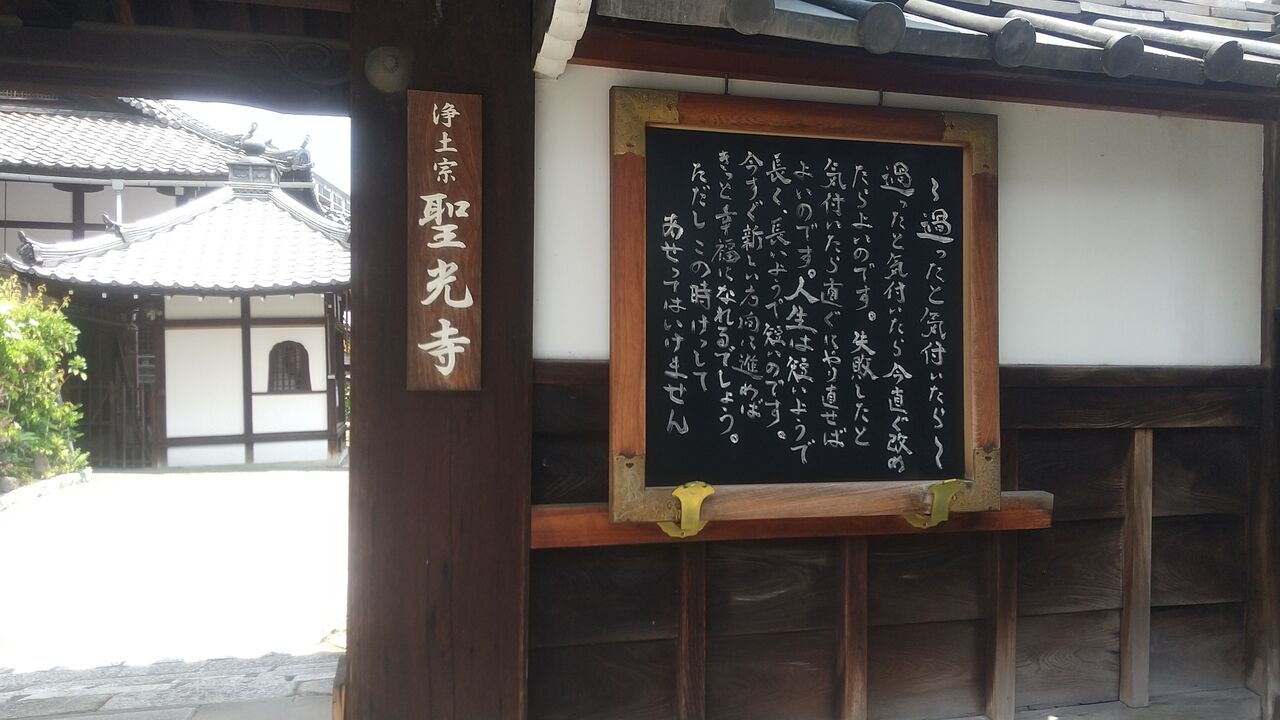 浄土宗 聖光寺
〜過ったと気付いたら〜
過ったと気付いたら今直ぐ改め
たらよいのです。失敗したと
気付いたら直ぐにやり直せば
よいのです。人生は短いようで
長く、長いようで短いのです。
今すぐ新しい方向に進めば
きっと幸福になれるでしょう。
ただしこの時けっして
あせってはいけません